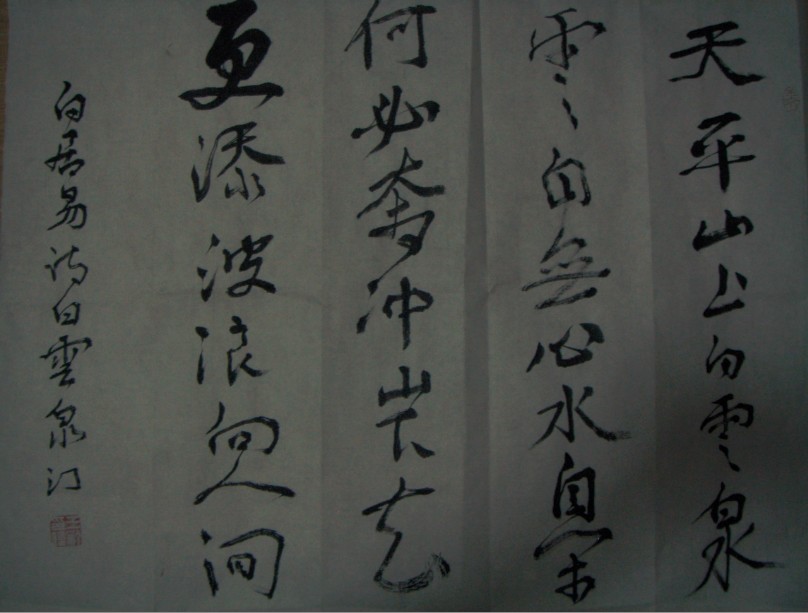 天平山上白雲泉
雲自無心水自閑
何必奔冲山下去
更添波浪向人间
白居易诗白雲泉